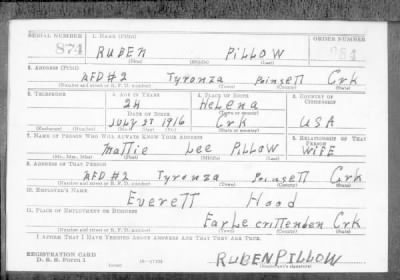 SERIAL NUMBER 1. NAME (Print) ORDER NUMBER
874 RUBEN PILLOW
(First) (Middle) (Last)
2. ADDRESS (Print)
RFD #2 Tyronza Poinsett Crk
(Number and street or R. F. D. number) (Town) (County) (State)
3. TELEPHONE 4. AGE IN YEARS 5. PLACE OF BIRTH 6. COUNTRY OF CITIZENSHIP
24 Helena
DATE OF BIRTH (Town or county)
JULY 1916 Crk USA
(Exchange) (Number) (Mo.) (Day) (Yr.) (State or country)
7. NAME OF PERSON WHO WILL ALWAYS KNOW YOUR ADDRESS 8. RELATIONSHIP OF THAT PERSON
Mattie Lee PILLOW WIFE
(Mr., Mrs., Miss) (First) (Middle) (Last)
9. ADDRESS OF THAT PERSON
RFD #2 Tyronza Poinsett Crk
(Number and street or R. F. D. number) (Town) (County) (State)
10. EMPLOYER'S NAME
Everett Hood
11. PLACE OF EMPLOYMENT OR BUSINESS
Earle crittenden Crk
(Number and street or R. F. D. number) (Town) (County) (State)
I AFFIRM THAT I HAVE VERIFIED ABOVE ANSWERS AND THAT THEY ARE TRUE.
REGISTRATION CARD
D. S. S. Form 1
RUBEN PILLOW
(Registrant's signature)